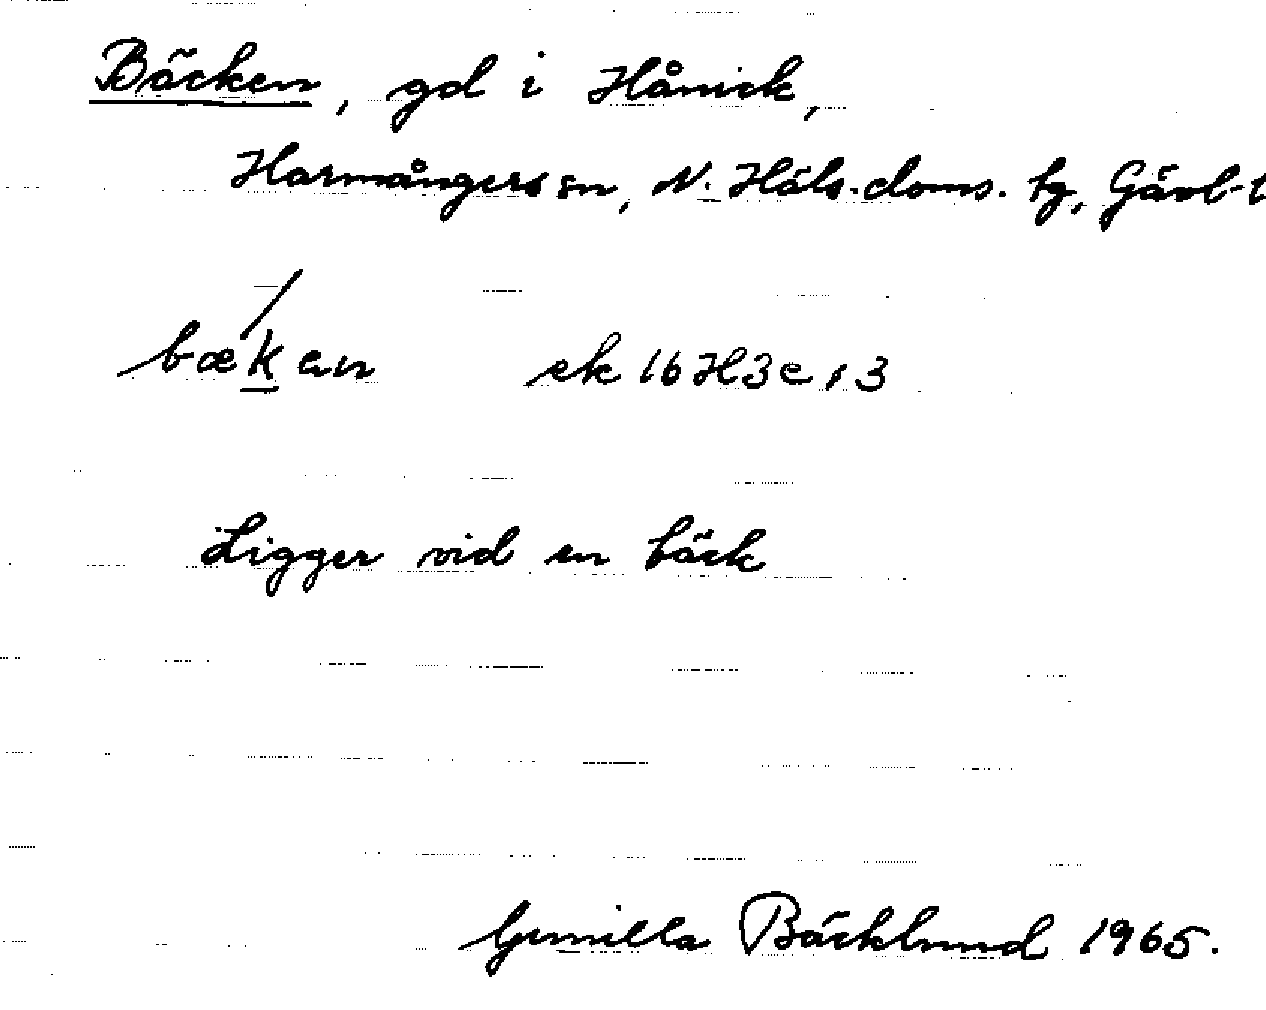 Bäcken, gd i Hånick,
Harmångers sn, N. Häls. doms. tg, Gävl-l
bækən ek 16H3e, 3
Ligger vid en bäck
Gunilla Bäcklund 1965.